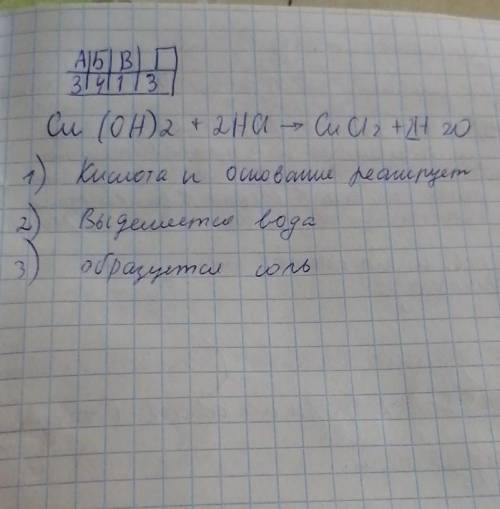 А Б В
3 4 1 3
Cu (OH)2 + 2HCl → CuCl2 + 2H2O
1) Кислота и основание реагирует
2) Выделяется вода
3) образуется соль